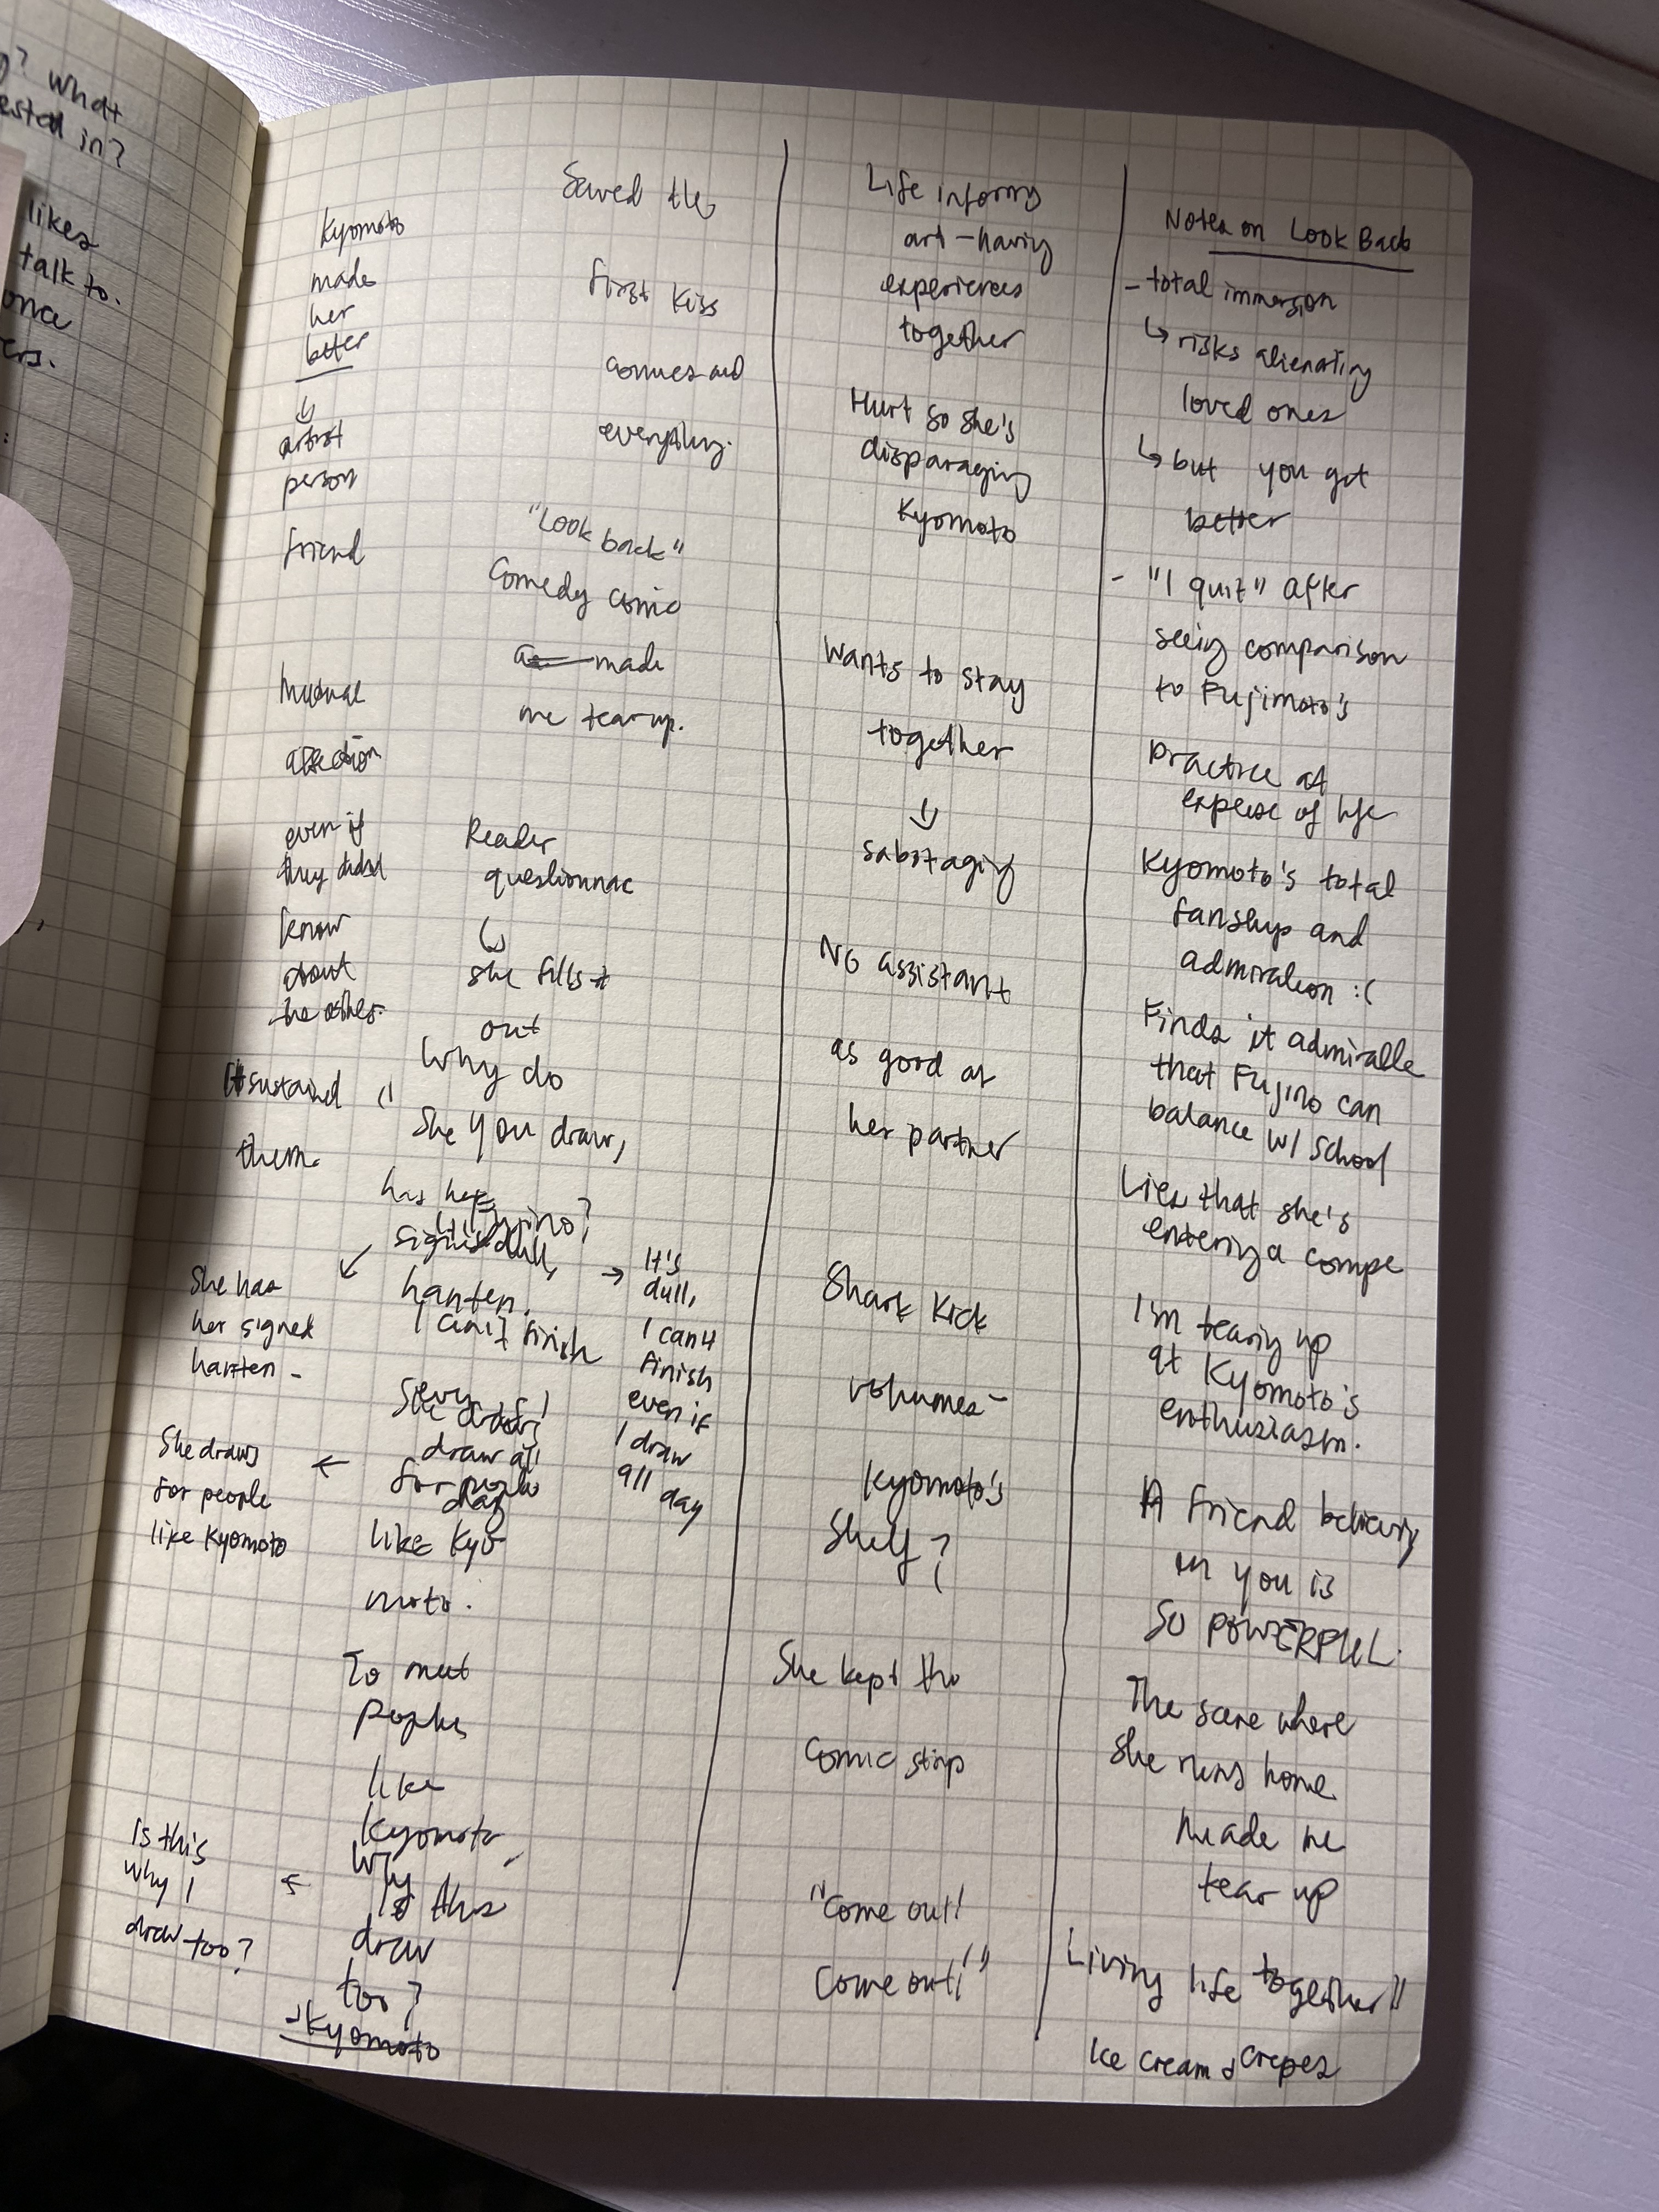 ? What
ested in?
likes
talk to.
once
ers.
Notes on Look Back
- total immersion
↳ risks alienating
loved ones
↳ but you get
better
- "I quit" after
seeing comparison
to Fujimoto's
practice at
expense of life
Kyomoto's total
fanship and
admiration :(
Finds it admirable
that Fujino can
balance w/ school
Lies that she's
entering a compe
I'm tearing up
at Kyomoto's
enthusiasm.
A friend believing
in you is
SO POWERFUL.
The scene where
she runs home
made me
tear up
Living life together!!
Ice cream & crepes
Life informing
art - having
experiences
together
Hurt so she's
disparaging
Kyomoto
Wants to stay
together
↓
sabotaging
No assistant
as good as
her partner
Shark Kick
volumes -
Kyomoto's
Shelf?
She kept the
comic strip
"Come out!
Come out!"
Saved the
first kiss
comics and
everything.
"Look back"
Comedy comic
made
me tear up.
Reader
questionnaire
↳
she fills it
out
"Why do
you draw,
Fujino?
→ It's
dull,
I can't
finish
even if
I draw
all day
hanten.
I can't finish
draw all
for people
day
like Kyo-
moto.
To meet
people
like
Kyomoto
Why
Is this
draw
too?
- Kyomoto
Kyomoto
made
her
better
↓
artist
person
friend
Mutual
affection
even if
they didn't
know
about
the other.
It sustained
them.
↙
She has
her signed
hanten -
She draws ←
for people
like Kyomoto
Is this
why I ←
draw too?